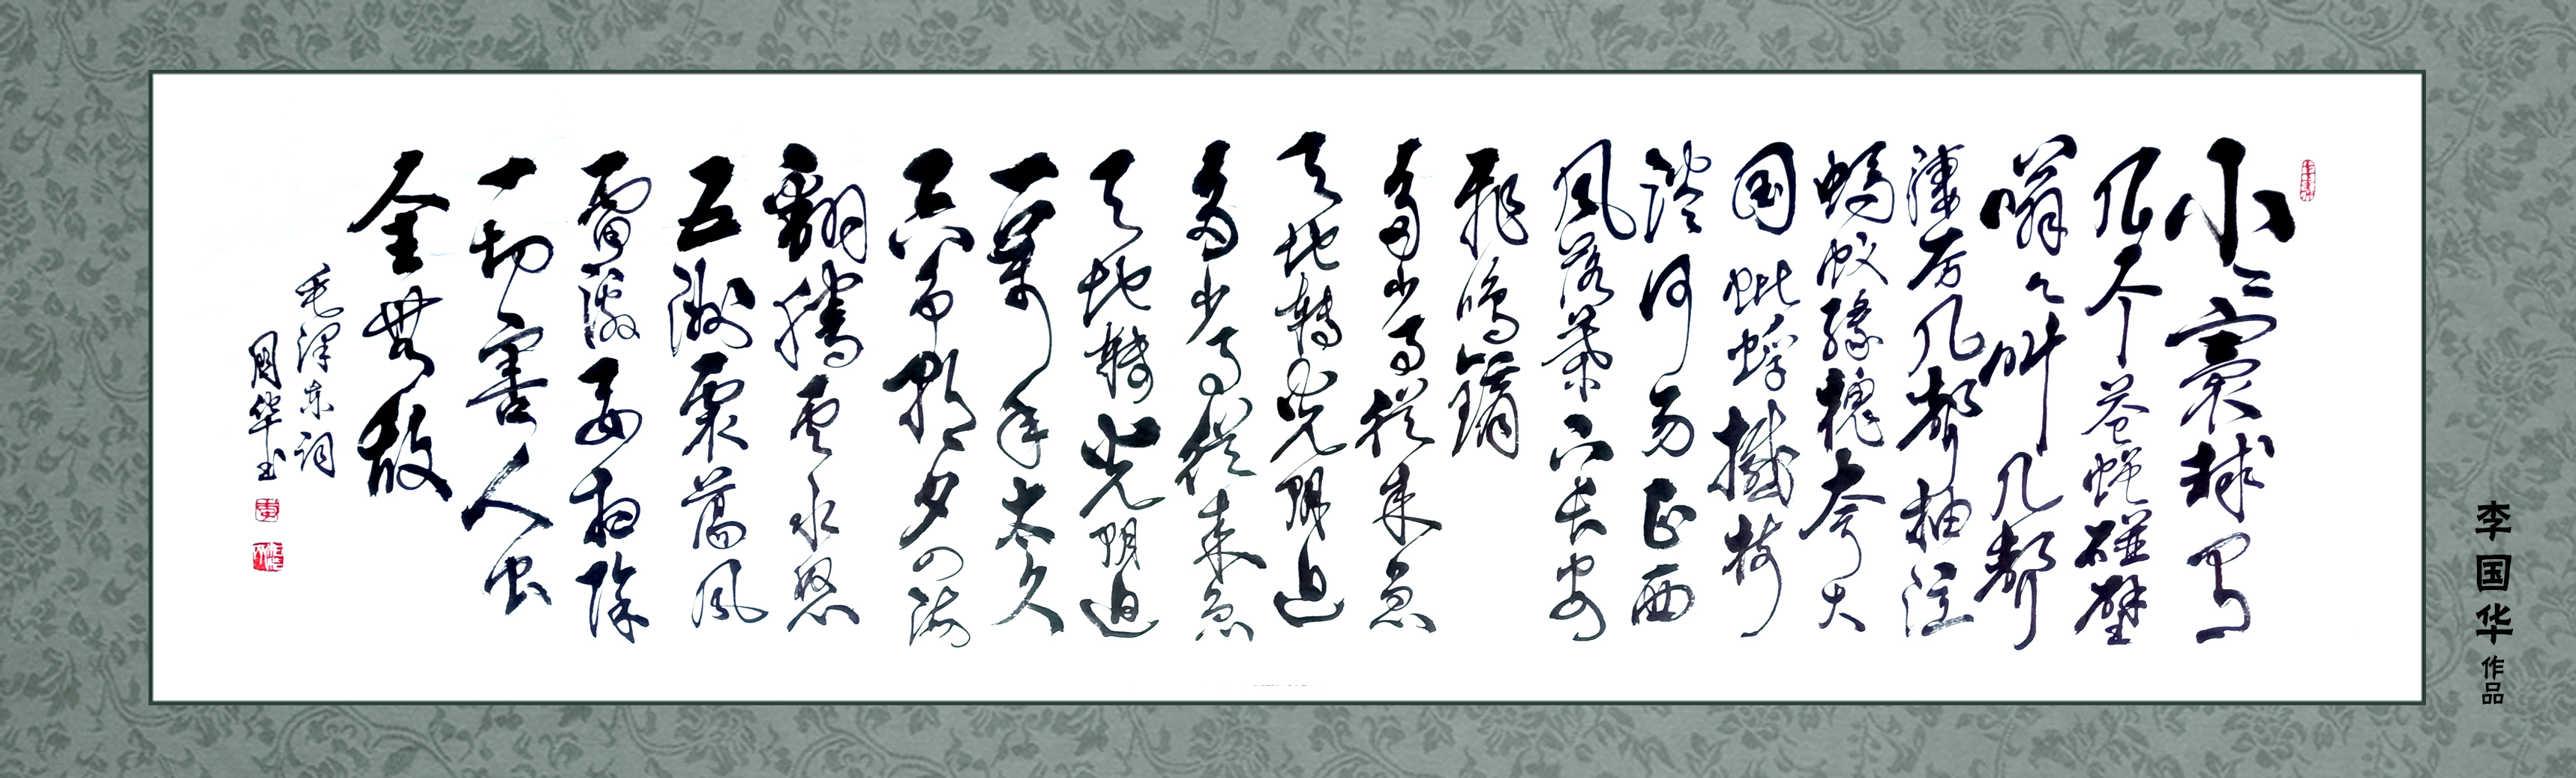 小〻寰球有
几个苍蝇碰壁
嗡〻叫几声
凄厉几声抽泣
蚂蚁缘槐夸大
国蚍蜉撼树
谈何易正西
风落葉下长安
飛鸣镝
多少事從来急
天地轉光阴迫
多少事從来急
天地轉光阴迫
一萬年太久
只争朝夕四海
翻腾雲水怒
五洲震荡风
雷激要扫除
一切害人虫
全無敌
毛泽东词
国华书
李国华作品